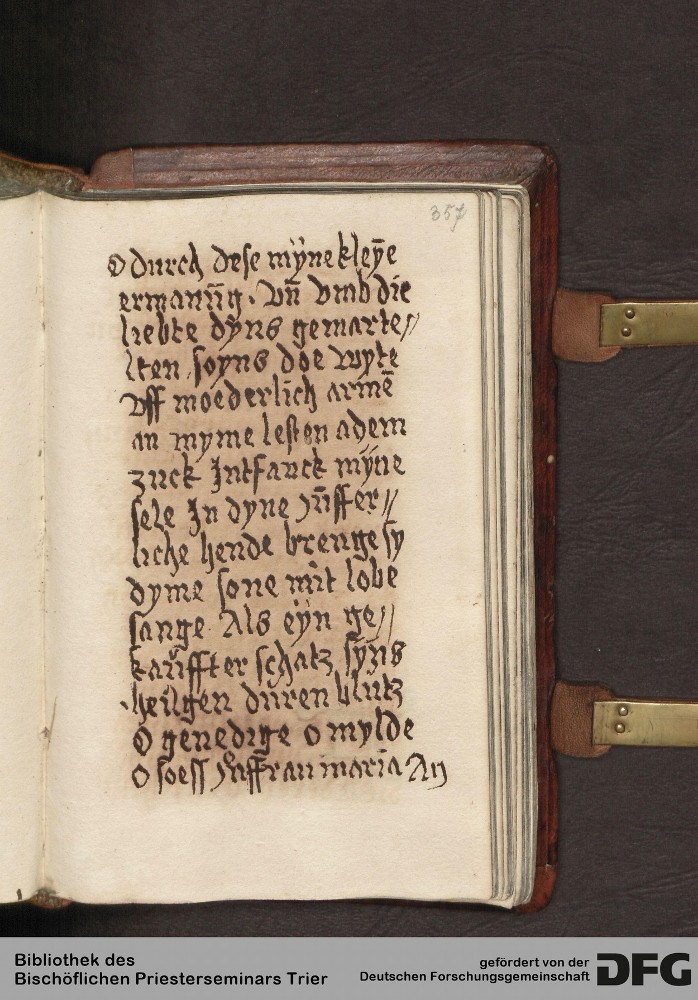 357
O durch dese mÿne kleyē
ermanūg · Vn̄ vmb die
liebte dyns gemarte//
lten soyns doe wyte
vff moederlich armē
an myme lesten adem
zuck Intfanck mÿne
sele In dyne Jūffer//
liche hende brenge sy
dyme sone mit lobe
sange Als eyn ge//
kauffter schatz sÿns
heilgen duren blutz
O genedige o mylde
O soess Juffrau maria An
Bibliothek des
Bischöflichen Priesterseminars Trier
gefördert von der
Deutschen Forschungsgemeinschaft
DFG